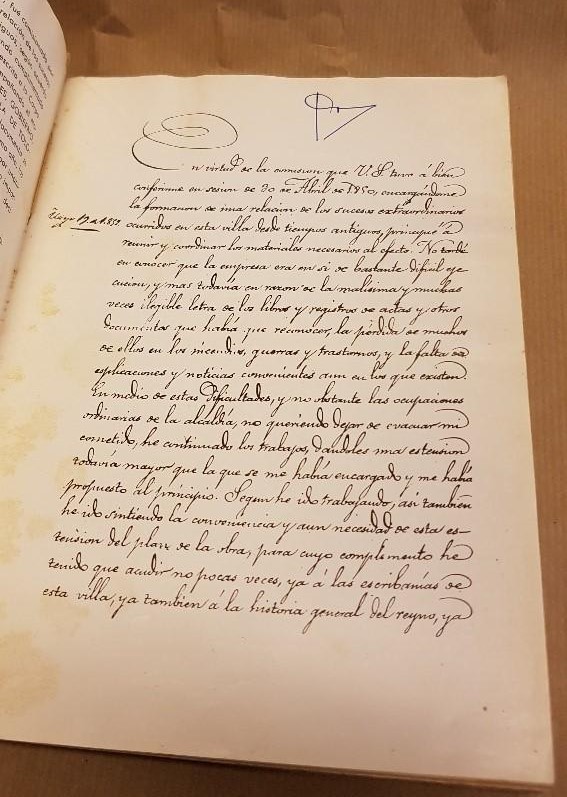 En virtud de la comision que V. S. tuvo á bien
conferirme en sesion de 30 de Abril de 1850, encargándome
la formacion de una relacion de los sucesos extraordinarios
Mayo 19 de 1852
ocurridos en esta villa desde tiempos antiguos, principié á
reunir y coordinar los materiales necesarios al efecto. No tardé
en conocer que la empresa era en si de bastante dificil eje
cucion, y mas todavia en razon de la malísima y muchas
veces ilegible letra de los libros y registros de actas y otros
documentos que habia que reconocer, la pérdida de muchos
de ellos en los incendios, guerras y trastornos, y la falta de
esplicaciones y noticias convenientes aun en los que existen.
En medio de estas dificultades, y no obstante las ocupaciones
ordinarias de la alcaldía, no queriendo dejar de evacuar mi
cometido, he continuado los trabajos, dándoles una estension
todavia mayor que la que se me habia encargado y me habia
propuesto al principio. Segun he ido trabajando, asi tambien
he ido sintiendo la conveniencia y aun necesidad de esta es-
tension del plan de la obra, para cuyo complemento he
tenido que acudir no pocas veces, ya á las escribanías de
esta villa, ya tambien á la historia general del reyno, ya